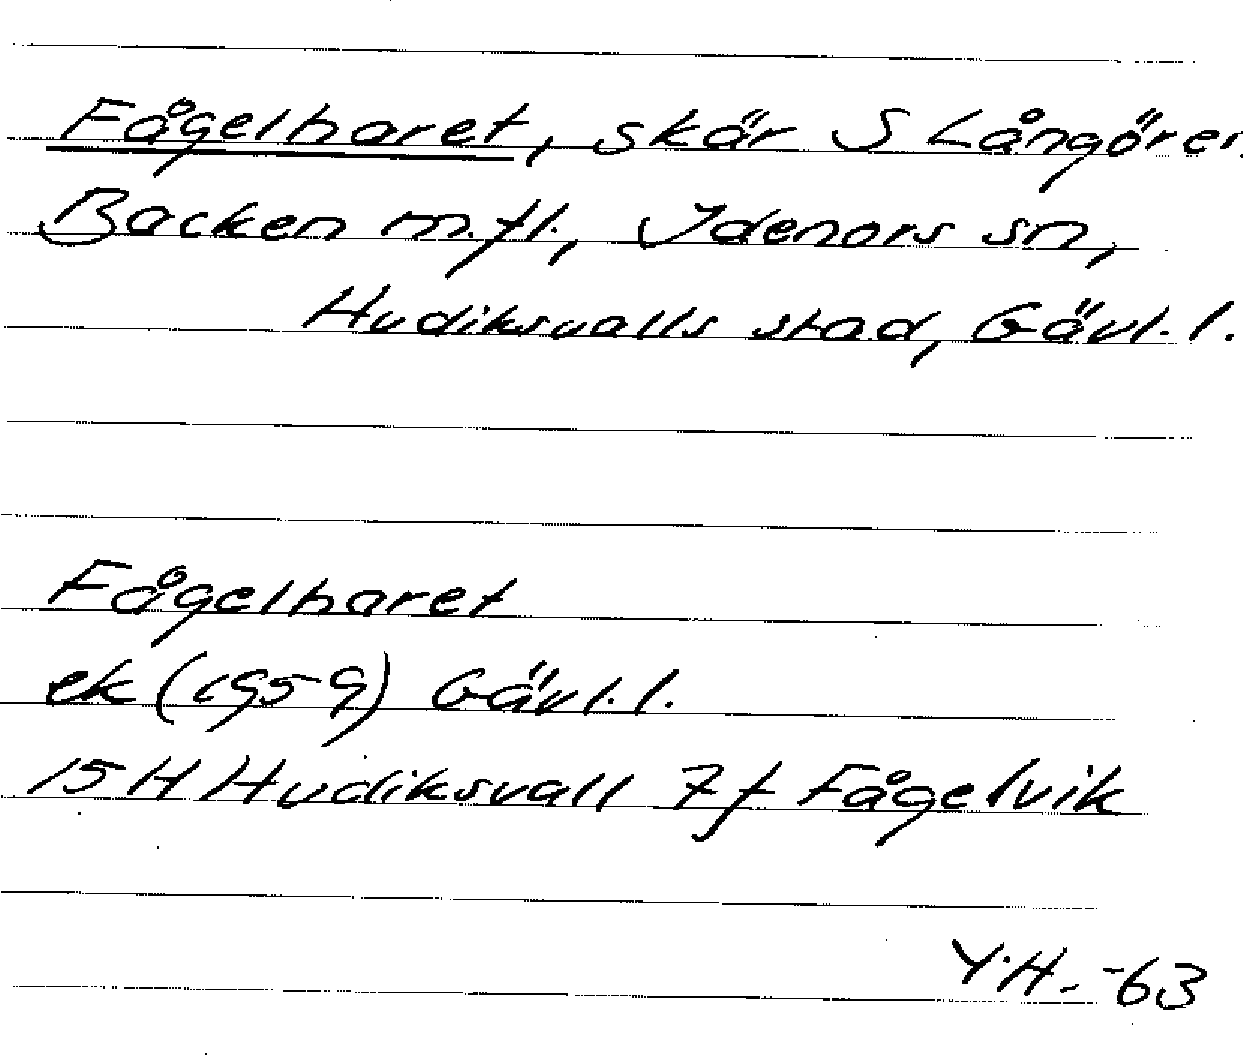 Fågelharet, skär S Långören
Backen m.fl., Idenors sn,
Hudiksvalls stad, Gävl. l.
Fågelharet
ek (1959) Gävl. l.
15 H Hudiksvall 7 f Fågelvik
Y.H. -63